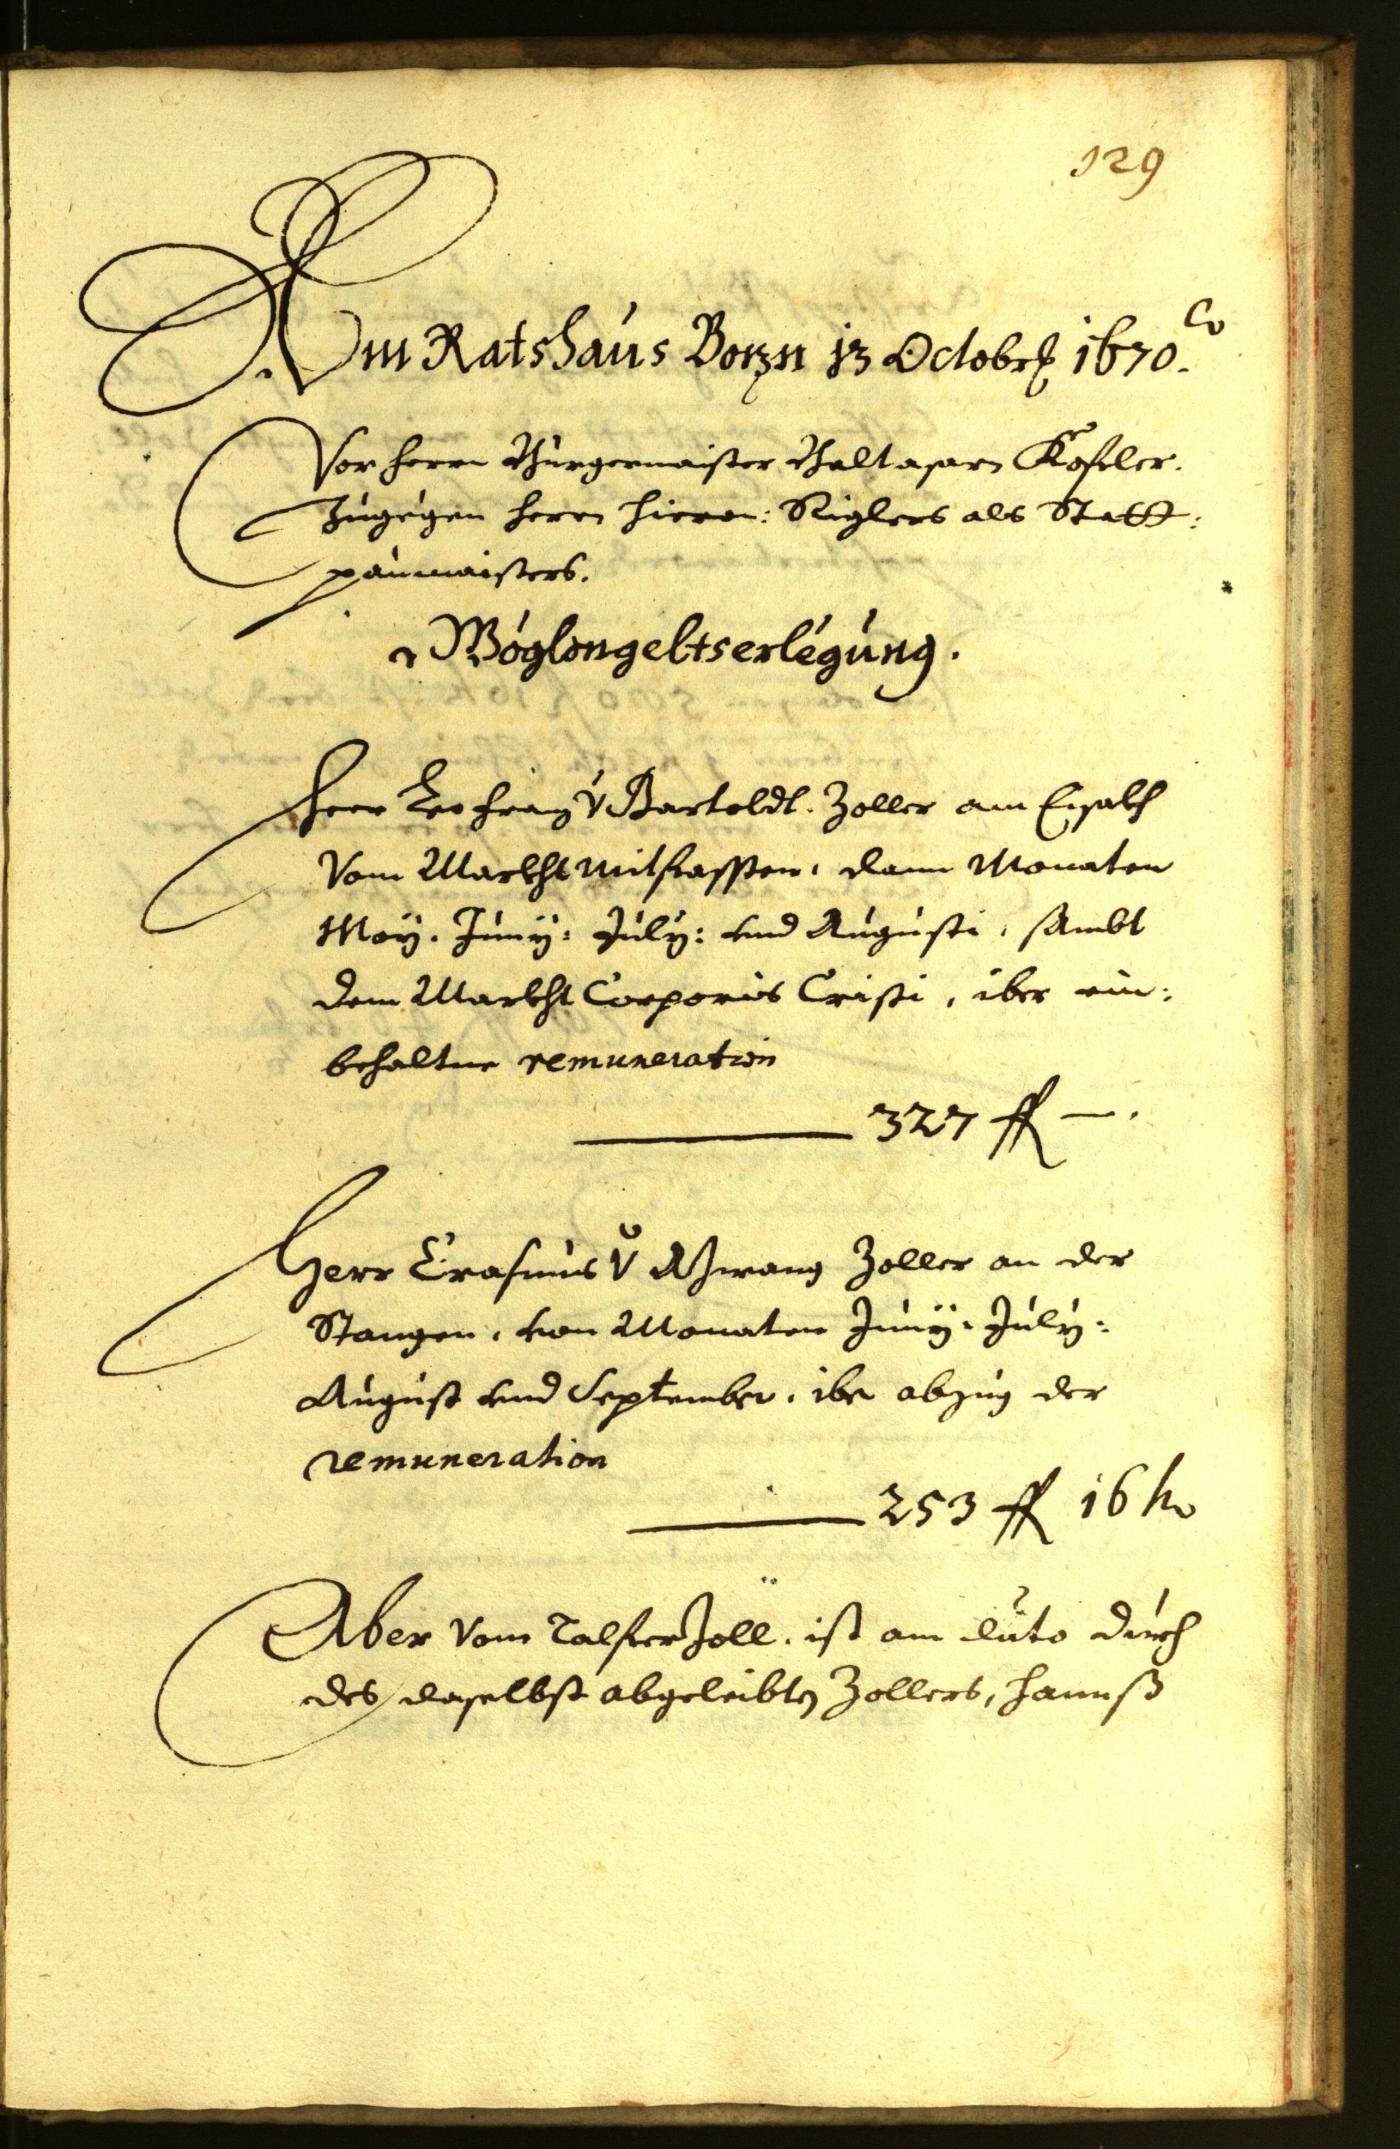 129
Am Ratshaus Bozn 13 Octobr 1670.
Vor herrn Burgermaister Balthasarn Kofeler.
Zugegen herrn Hieron: Riglers als Statt:
paumaisters.
Wöglongeltserlegung.
Herr Leo Franz v Bartoldt. Zoller am Eisakh
Vom Markht Mitfassten, dann Monaten
May. Juny: July: und Augusti, sambt
dem Markht Corporis Cristi, iber ein:
behaltne remuneration
327 fl —.
Herr Erasmus v Azwang Zoller an der
Stangen, von Monaten Juny. July:
August und September. iber abzug der
remuneration
253 fl 16 kr
Aber vom Talfer Zoll. ist am dato durch
des daselbst abgeleibtn Zollers, Hannß